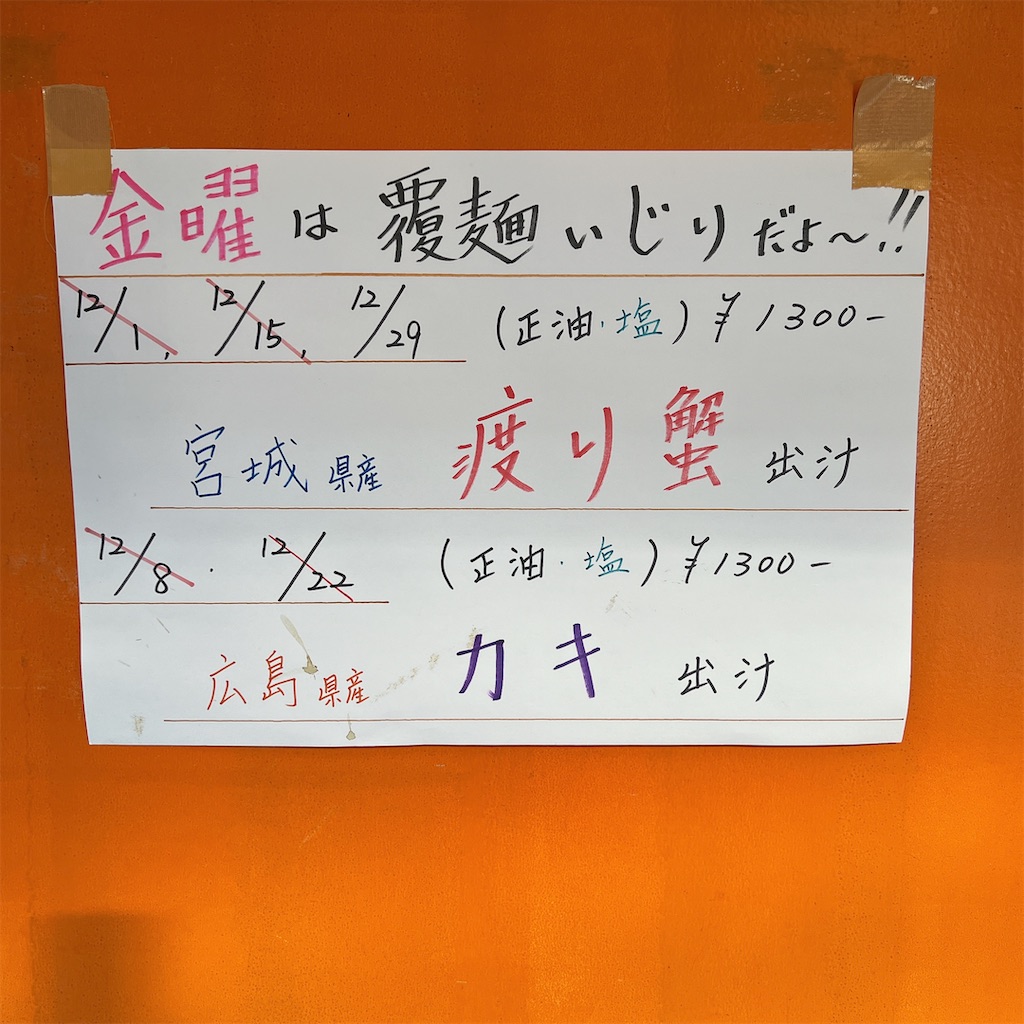 金曜は覆麺いじりだよ〜!!
12/1, 12/15, 12/29 (正油・塩) ¥1300-
宮城県産 渡り蟹 出汁
12/8・ 12/22 (正油・塩) ¥1300-
広島県産 カキ 出汁